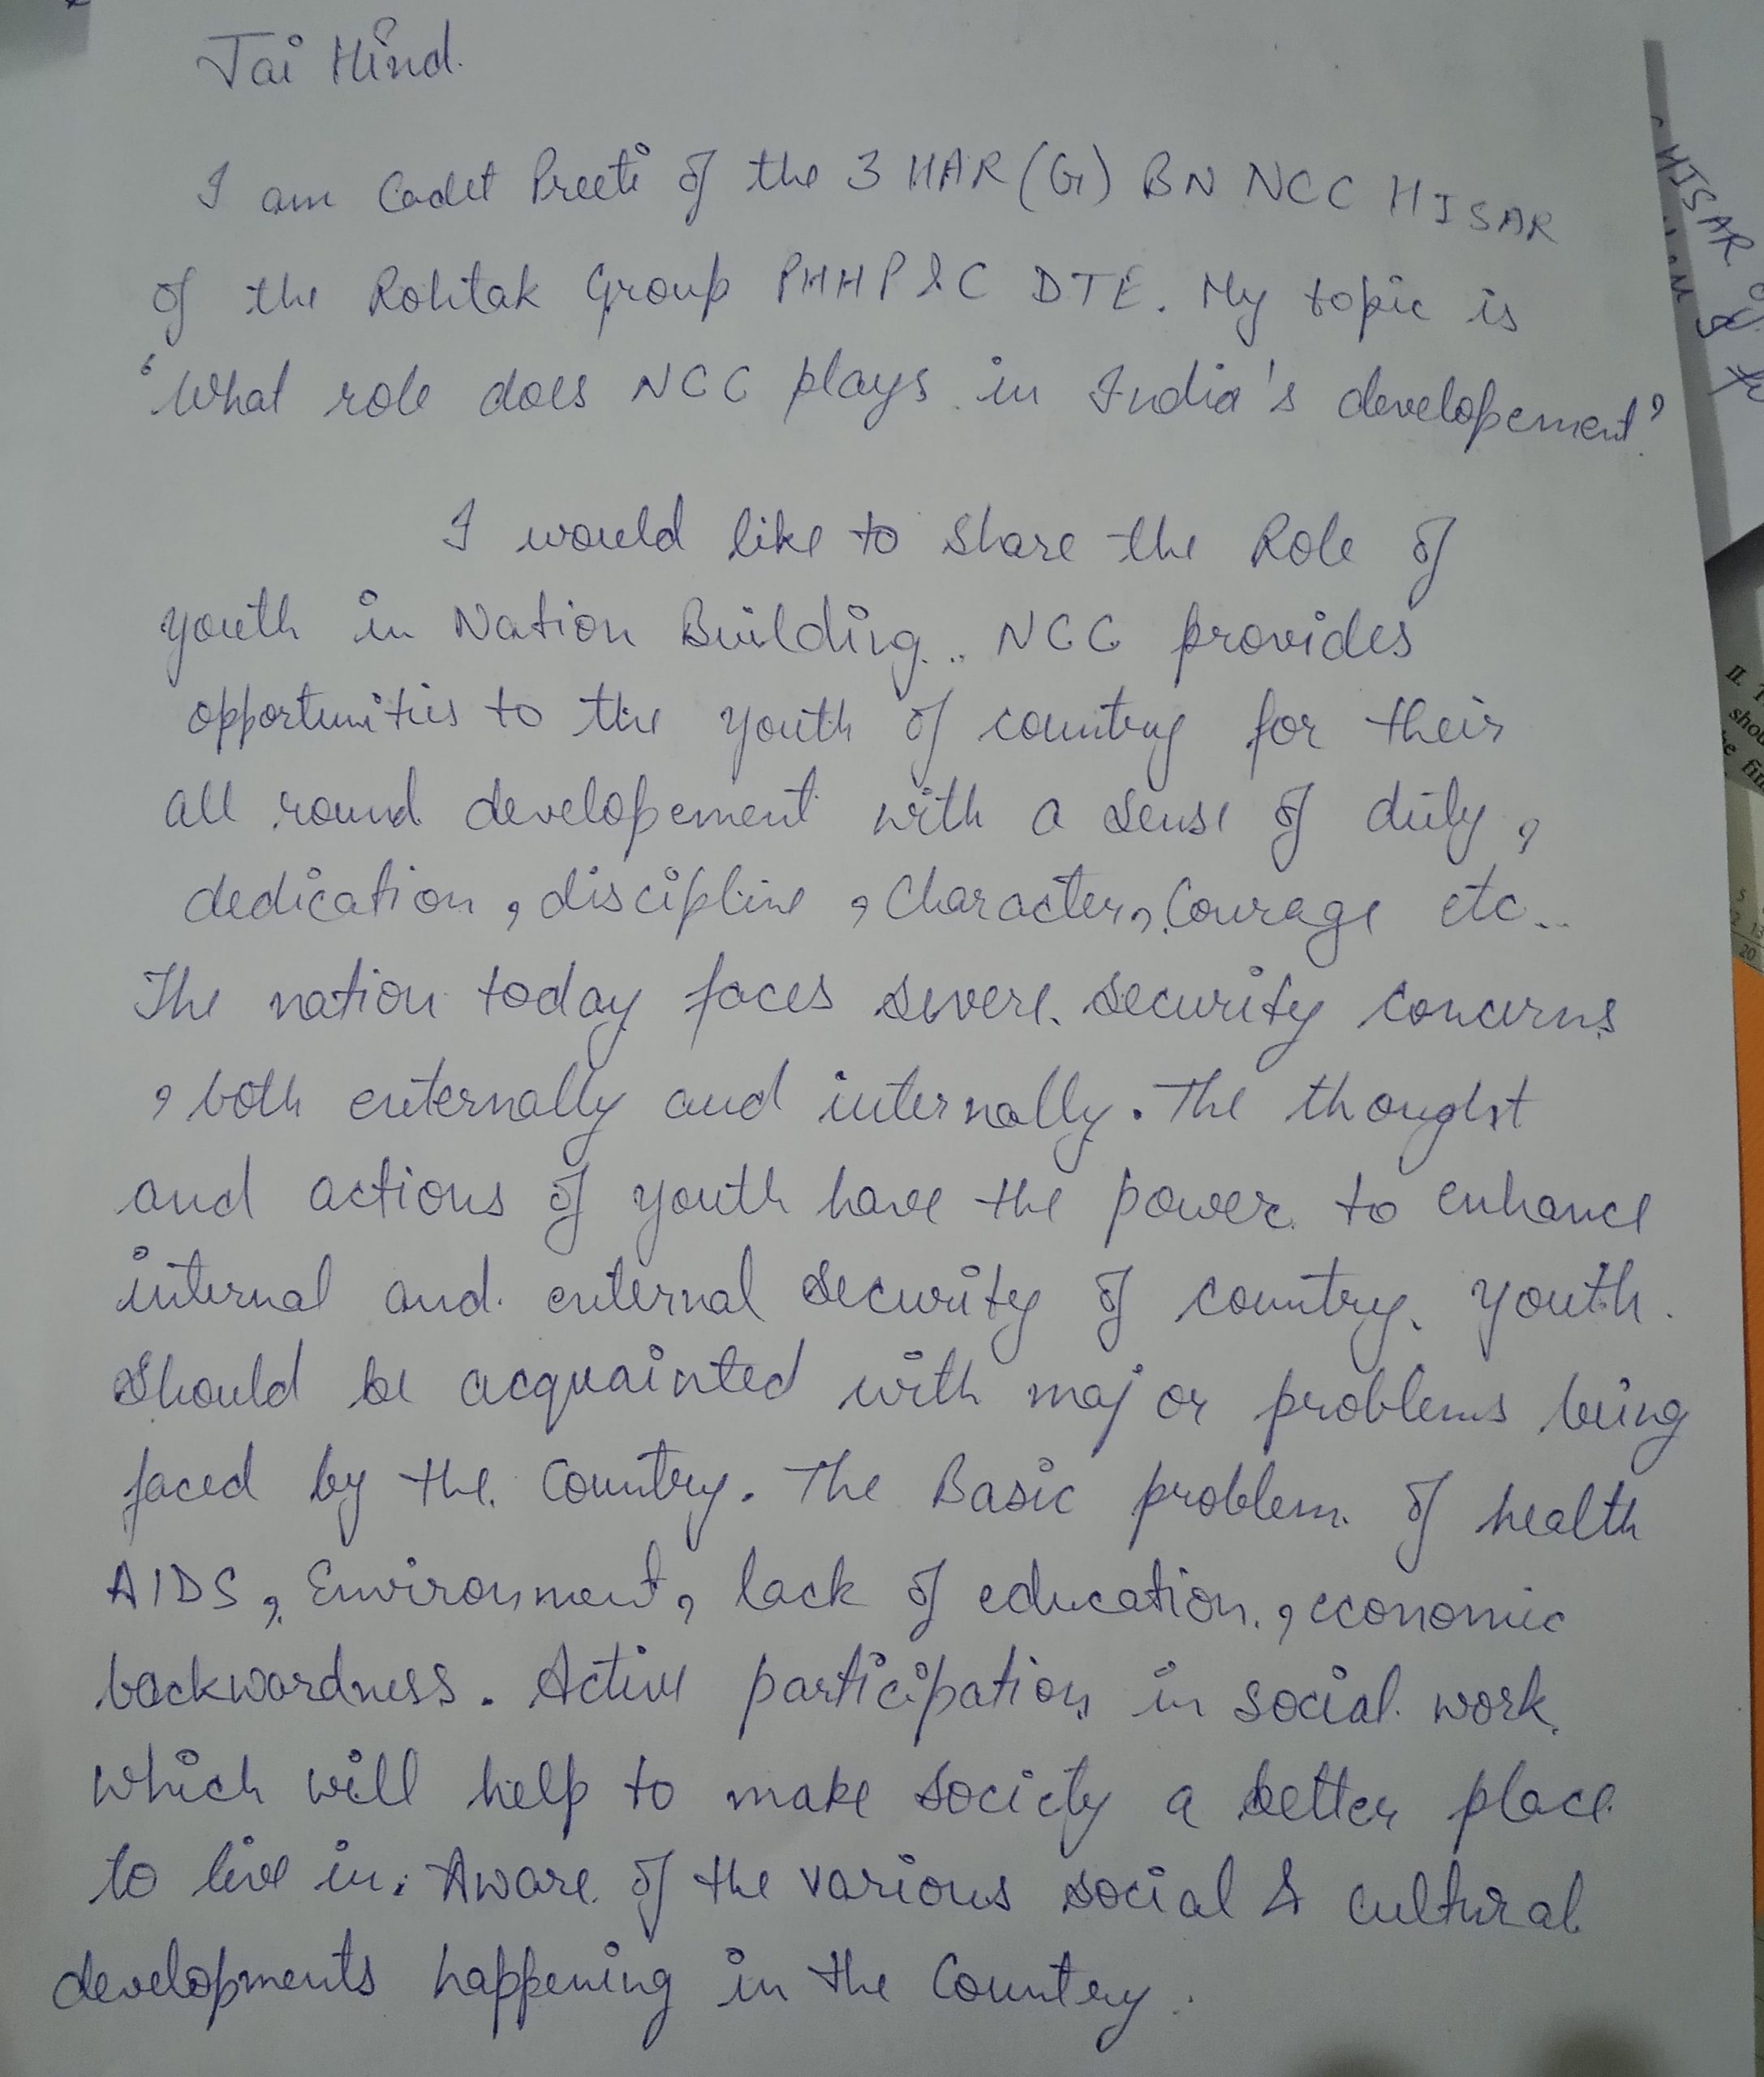 Jai Hind.
I am Cadet Preeti of the 3 HAR(G) BN NCC HISAR
of the Rohtak Group PHHP&C DTE. My topic is
'What role does NCC plays in India's developement'
I would like to share the Role of
youth in Nation Building.. NCC provides
opportunities to the youth of country for their
all round developement with a sense of duty,
dedication, discipline, Character, Courage etc..
The nation today faces severe security concerns
, both externally and internally. The thought
and actions of youth have the power to enhance
internal and external security of country. Youth
should be acquainted with major problems being
faced by the Country. The Basic problem of health
AIDS, Environment, lack of education, economic
backwardness. Active participation in social work
which will help to make society a better place
to live in. Aware of the various social & cultural
developments happening in the Country.
HISAR